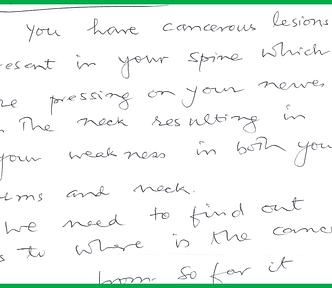 You have cancerous lesions
resent in your spine which
re pressing on your nerves
The neck resulting in
your weakness in both you
rms and neck.
we need to find out
s to where is the cance
from. So far it